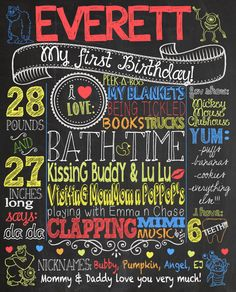 EVERETT
My first Birthday!
I LOVE:
PEEK-A-BOO
MY BLANKETS
BEING TICKLED
BOOKS TRUCKS
BATH TIME
Kissing Buddy & Lu Lu
Visiting MomMom n PopPop's
playing with Emma n Chase
CLAPPING MIMI MUSIC
28
POUNDS
AND
27
INCHES
long
says:
da da
Mickey
Mouse
Clubhouse
YUM:
puffs
bananas
cookies
everything
else!!!
I have:
6
TEETH!
NICKNAMES: Bubby, Pumpkin, Angel, EJ
Mommy & Daddy love you very much!